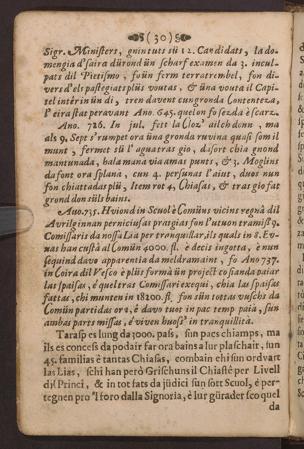 (30)
Sigr. Ministers, gnin tuts sü 12. Candidats, la do-
mengia d'saira dürond ün scharf examen da 3. incul-
pats dil Pietismo, foün ferm terrotrembel, fon di-
vers d'els pastegiats plüs voutas, & üna vouta il Capi-
tel interin ün di, tren davent cun gronda Contenteza,
l' eira stat peravant Ano. 645. quel on fo sezda è scarz.
Ano. 726. In Jul. fett la Cloz' ailch donn, ma
als 9. Sept s'rumpet ora üna gronda ruvina quasi som il
munt, fermet sü l' aguatras gio, d' sort chia gnond
mantunada, bala mana via amas punts, & 3. Moglins
da font ora splanà, cun 4. persunas l' aiut, duos nun
fon chiattadas plü, Item rot 4, Chiasas, & tras gio fat
grond don süls baint.
Ano. 735. Hviond in Scuol è Comüns vicins regnà dil
Avrilg innan perniciusas praegias fon l' utuon transf: 9.
Comissaris da nossa Lia per tranquillar, ils quals in 8. Ev-
nas han custà al Comün 4000. fl. è decis ingotta, è nun
sequind davo apparentia da meldramaint, fo Ano 737.
in Coira dil Vesco è plüs formà ün project co fianda paiar
las spaisas, è quel tras Comissari exequi, chia las spaisas
fattas, chi munten in 18200. fl. fon sün tottas vuschs da
Comün partidas ora, è davo tuot in pac temp paia, sun
ambas parts missas, è viven huoss' in tranquillità.
Tarasp es lung da 3000. pass, sün paes champs, ma
ils es concess da podair far ora bains a lur plaschair, sun
45. familias è tantas Chiasas, combain ehi sun ordvart
las Lias, schi han però Grischuns il Chiastè per Livell
dil Princi, & in tot fats da jüdici sun sott Scuol, è per-
tegnen pro 'l foro dalla Signoria, è lur güradet sco quel
da